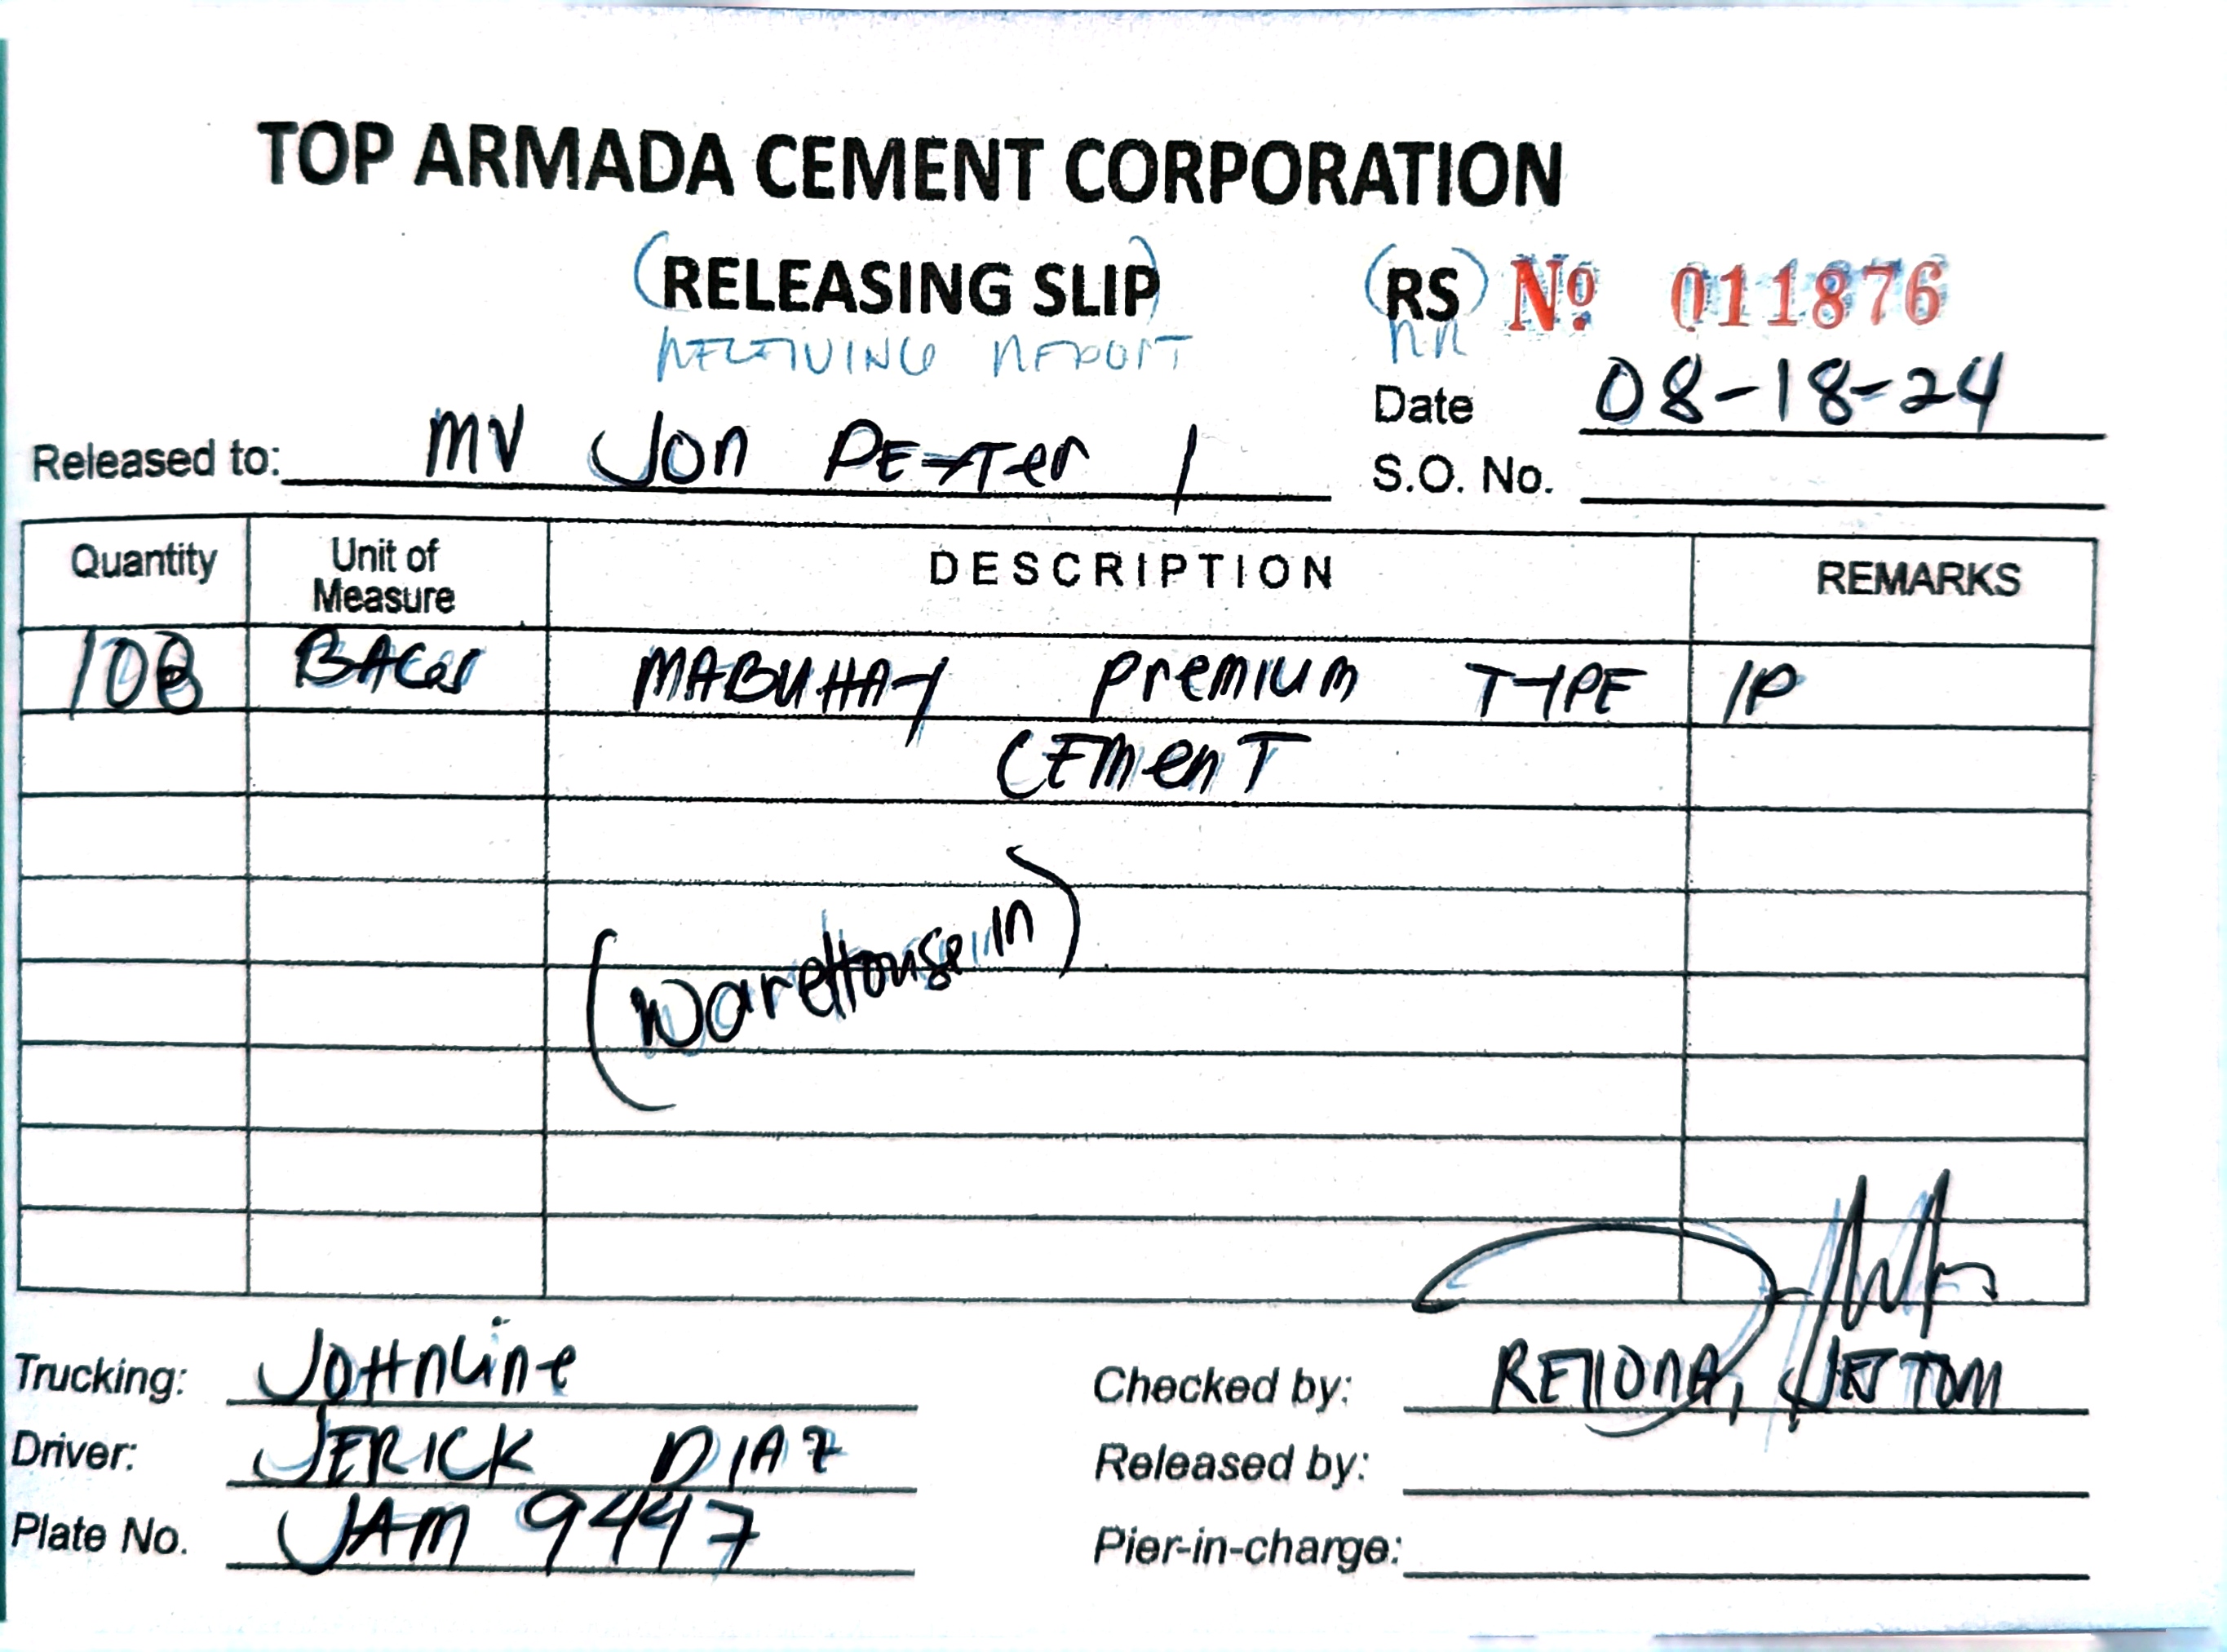 TOP ARMADA CEMENT CORPORATION
(RELEASING SLIP) (RS) Nº 011876
RECEIVING REPORT RR
Date 08-18-24
Released to: MV Jon PExTer 1
S.O. No.
Quantity Unit of Measure DESCRIPTION REMARKS
BAGS MABUHAY Premium TYPE 1P
CEMenT
(WareHouse in)
Trucking: JOHNLine
Checked by: JETTOM
Driver: JERICK DIAZ
Released by:
Plate No. JAM 9447
Pier-in-charge: